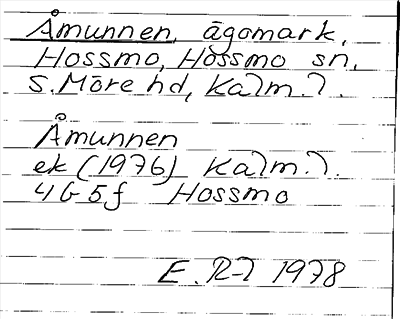 Åmunnen, ägomark,
Hossmo, Hossmo sn,
S. Möre hd, Kalm. l.
Åmunnen
ek (1976) Kalm. l.
4G5f Hossmo
E. R-l 1978